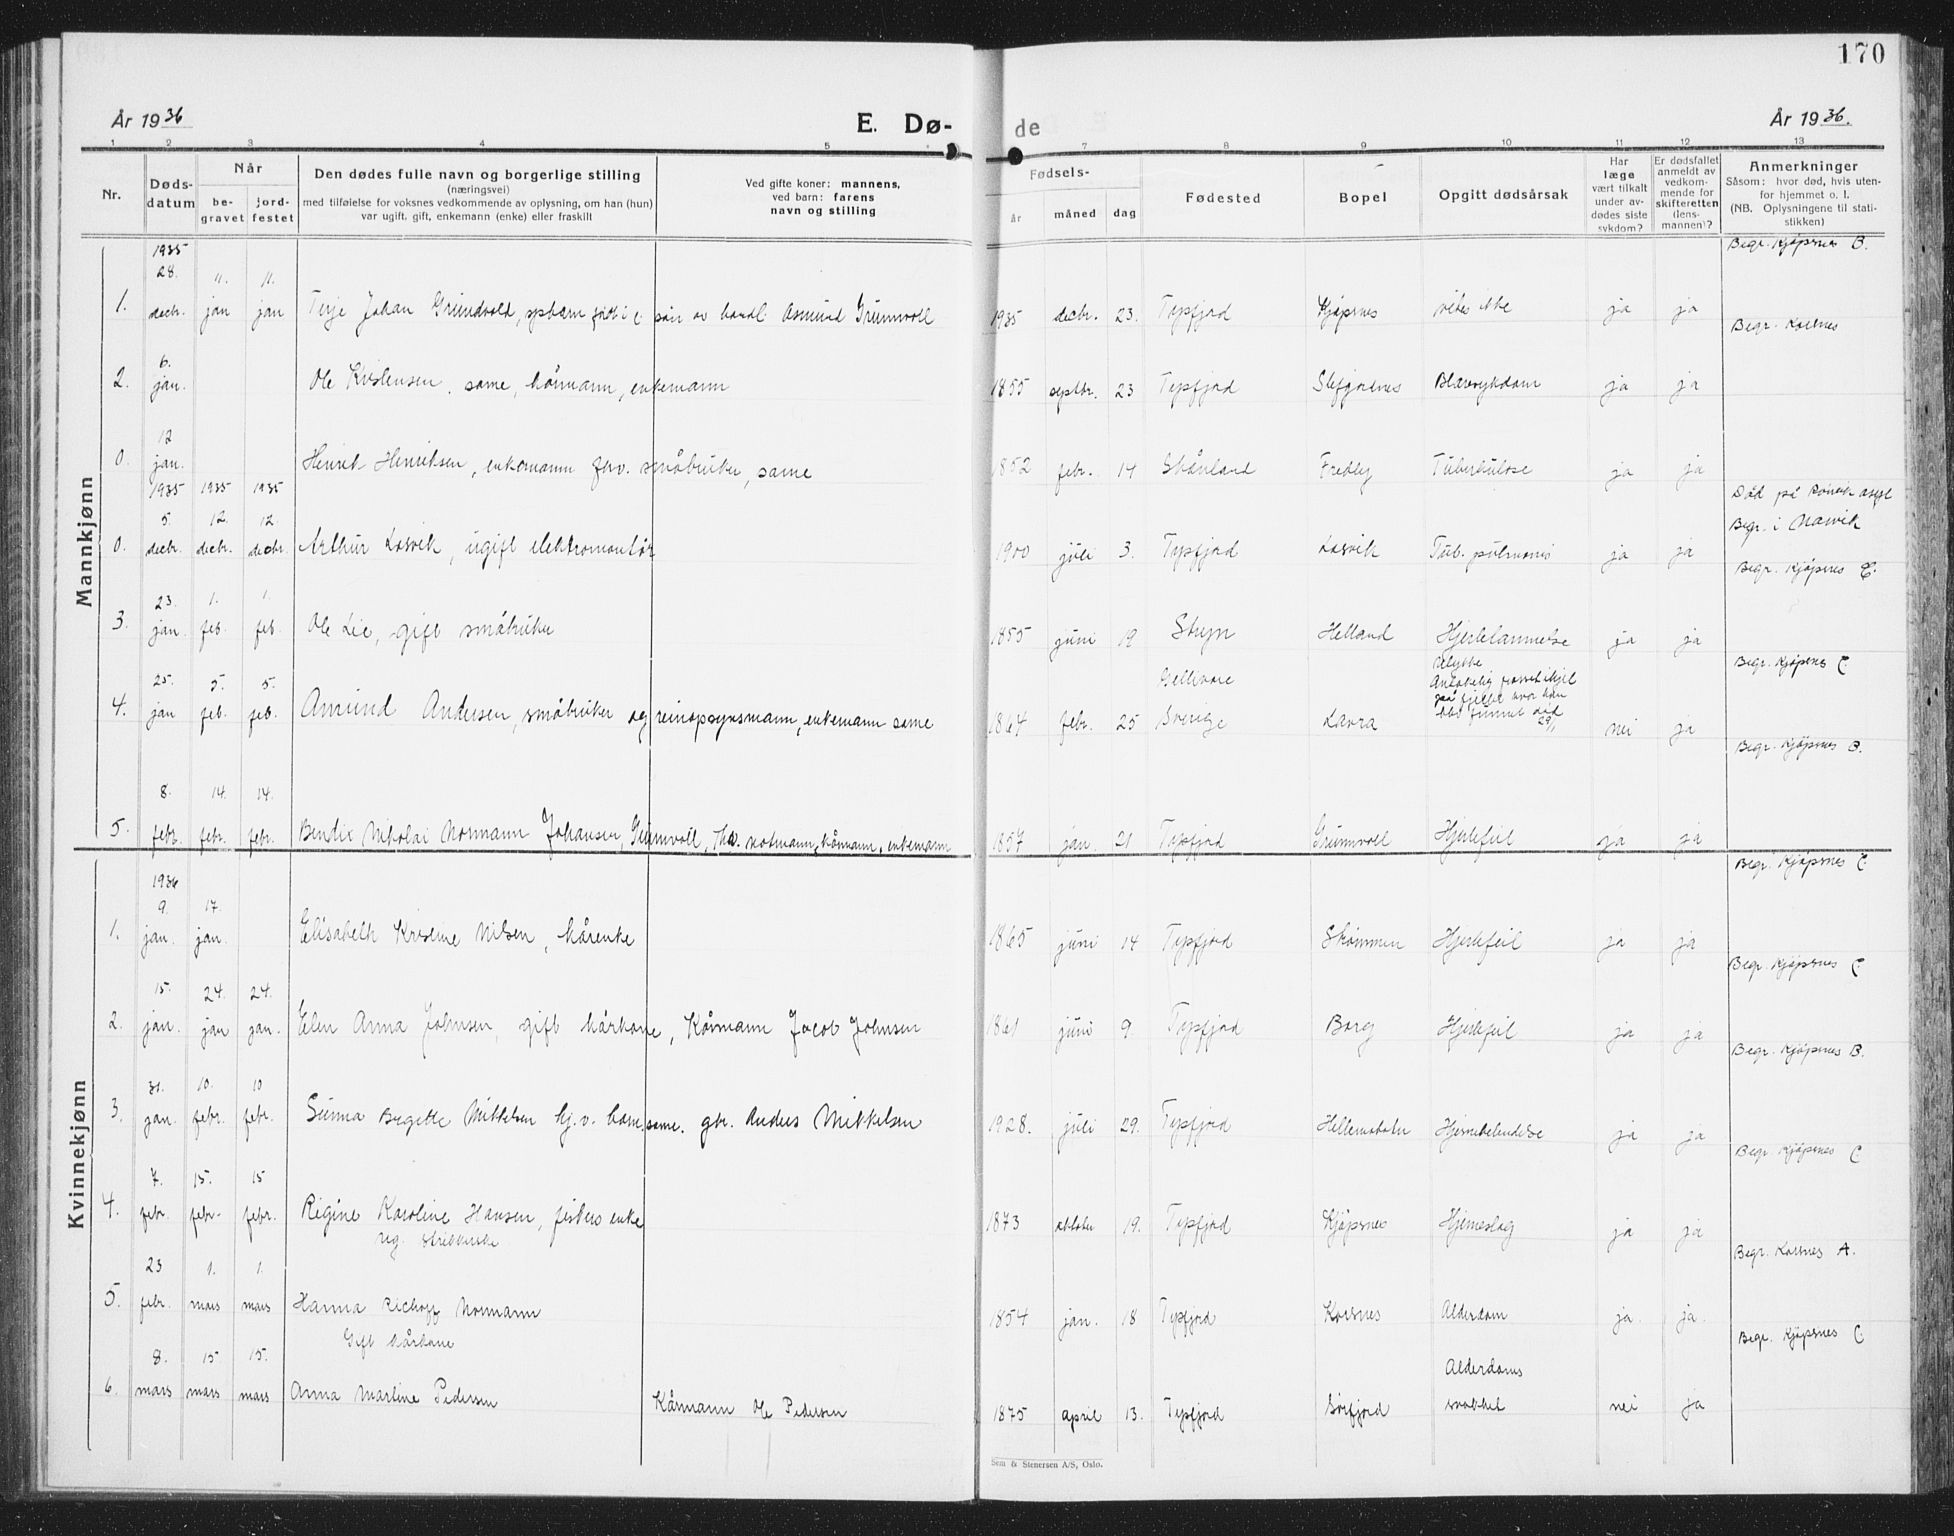 170
År 1936
E. Dø-
de
År 1936.
1 2 3 4 5 7 8 9 10 11 12 13
Nr.
Døds-
datum
Når
be-
gravet
jord-
festet
Den dødes fulle navn og borgerlige stilling
(næringsvei)
med tilføielse for voksnes vedkommende av oplysning, om han (hun)
var ugift, gift, enkemann (enke) eller fraskilt
Ved gifte koner: mannens,
ved barn: farens
navn og stilling
Fødsels-
år måned dag
Fødested
Bopel
Opgitt dødsårsak
Har
læge
vært tilkalt
under av-
dødes siste
sykdom?
Er dødsfallet
anmeldt av
vedkom-
mende for
skifteretten
(lens-
mannen)?
Anmerkninger
Såsom: hvor død, hvis uten-
for hjemmet o. l.
(NB. Oplysningene til stati-
stikken)
Mannkjønn
1. 1935 28. decbr. 11. jan 11. jan Terje Johan Grundvold, spbarn født i e. søn av handl. Asmund Grunnvoll 1935 decbr. 23. Tysfjord Kjøpsnes vites ikke ja ja Begr. Kjøpsnes B.
2. 6. jan. Ole Kristensen, same, kårmann, enkemann 1855 septbr. 23 Tysfjord Stefjordnes Blæresykdom ja ja Begr. Korsnes
0. 12 jan. Henrik Henriksen, enkemann, forv. småbruker, same 1852 febr. 14 Skånland Fredly Tuberkulose ja ja
0. 1935 5. decbr. 1935 12. decbr. 1935 12. decbr. Arthur Losvik, ugift elektromontør 1900 juli 3. Tysfjord Losvik Tub. pulmonis ja ja Død på
Begr. i Narvik
3. 23. jan. 1. feb. 1. feb. Ole Lie, gift småbruker 1855 juni 19 Stryn Helland Hjertelammelse ja ja Begr. Kjøpsnes C.
4. 25. jan 5. feb. 5. feb. Amund Andersen, småbruker og reinopsynsmann, enkemann same 1864 febr. 25 Gellivare Sverige Lavra Ulykke
Antakelig frosset ihjel
på fjellet hvor han
blev funnet død
29/1 nei ja Begr. Kjøpsnes C
5. 8. febr. 14. febr. 14. febr. Bendix Nikolai Normann Johansen, Grunnvoll, notmann, kårmann, enkemann 1857 jan. 21 Tysfjord Grunnvoll Hjertefeil ja ja Begr. Kjøpsnes B.
Kvinnekjønn
1. 1936 9. jan. 17. jan. Elisabeth Kristine Nilsen, kårenke 1865 juni 14 Tysfjord Skommen Hjertefeil ja ja Begr. Kjøpsnes C
2. 15. jan. 24. jan 24. jan. Elen Anna Johnsen, gift kårkone, Kårmann Jacob Johnsen 1861 juni 9. Tysfjord Borg Hjertefeil ja ja Begr. Kjøpsnes C
3. 31. jan. 10. febr. 10 febr. Sunna Birgette Mikkelsen hj.v. barn, same. gbr. Anders Mikkelsen 1928. juli 29. Tysfjord Hellemobotn Hjernebetendelse ja ja Begr. Kjøpsnes B.
4. 7. febr. 15. febr. 15 febr. Regine Karoline Hansen, fiskers enke 1873 oktober 19. Tysfjord Kjøpsnes Hjerneslag ja ja Begr. Kjøpsnes C
og strikkerske
5. 23 febr. 1. mars 1. mars Hanna Richoff Normann 1854 jan. 18 Tysfjord Korsnes Alderdom ja. ja. Begr. Korsnes A.
Gift kårkone
6. 8. mars 15 mars 15. mars Anna Martine Pedersen Kårmann Ole Pedersen 1875 april 13. Tysfjord Sørfjord Alderdoms
svakhet nei ja Begr. Kjøpsnes C
Sem & Stenersen A/S, Oslo.